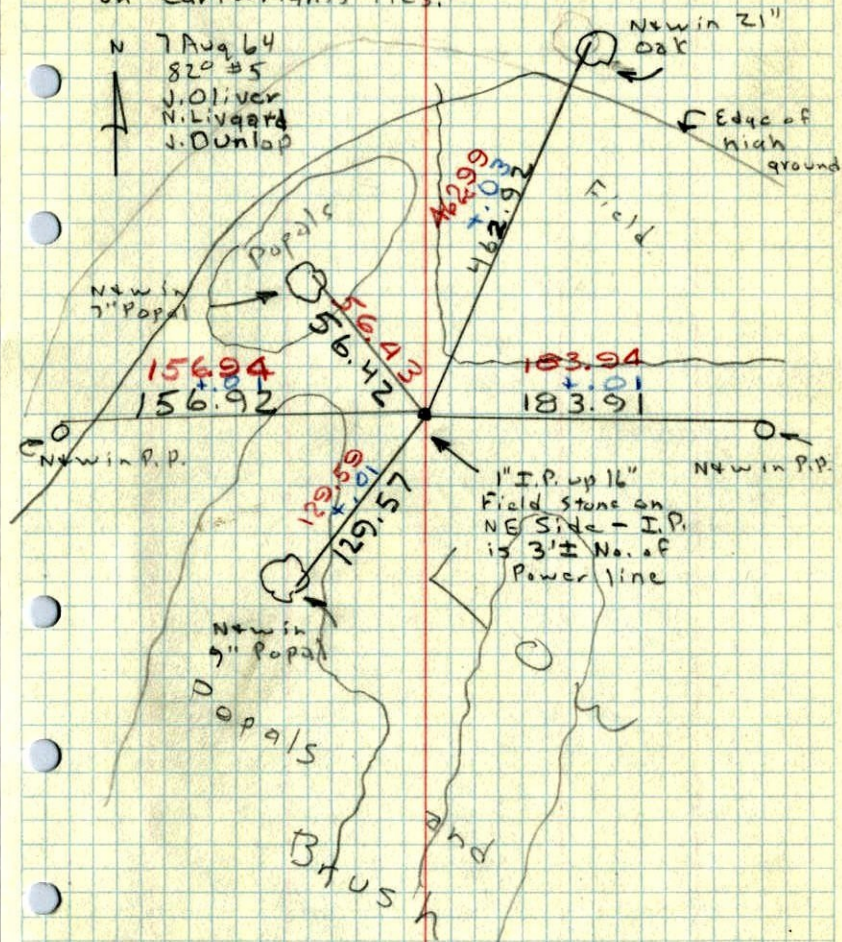 7 Aug 64
82° #5
J. Oliver
N. Livgard
J. Dunlop
N
N+w in 21"
Oak
Edge of
high
ground
Field
46299
+.03
462.92
Popals
N+w in
7" Popal
56.43
56.42
156.94
+.01
156.92
183.94
+.01
183.91
N+w in P.P.
N+w in P.P.
129.59
+.01
129.57
1" I.P. up 16"
Field stone on
NE Side - I.P.
is 3'± No. of
Power line
N+w in
9" Popal
Popals
and
Brush